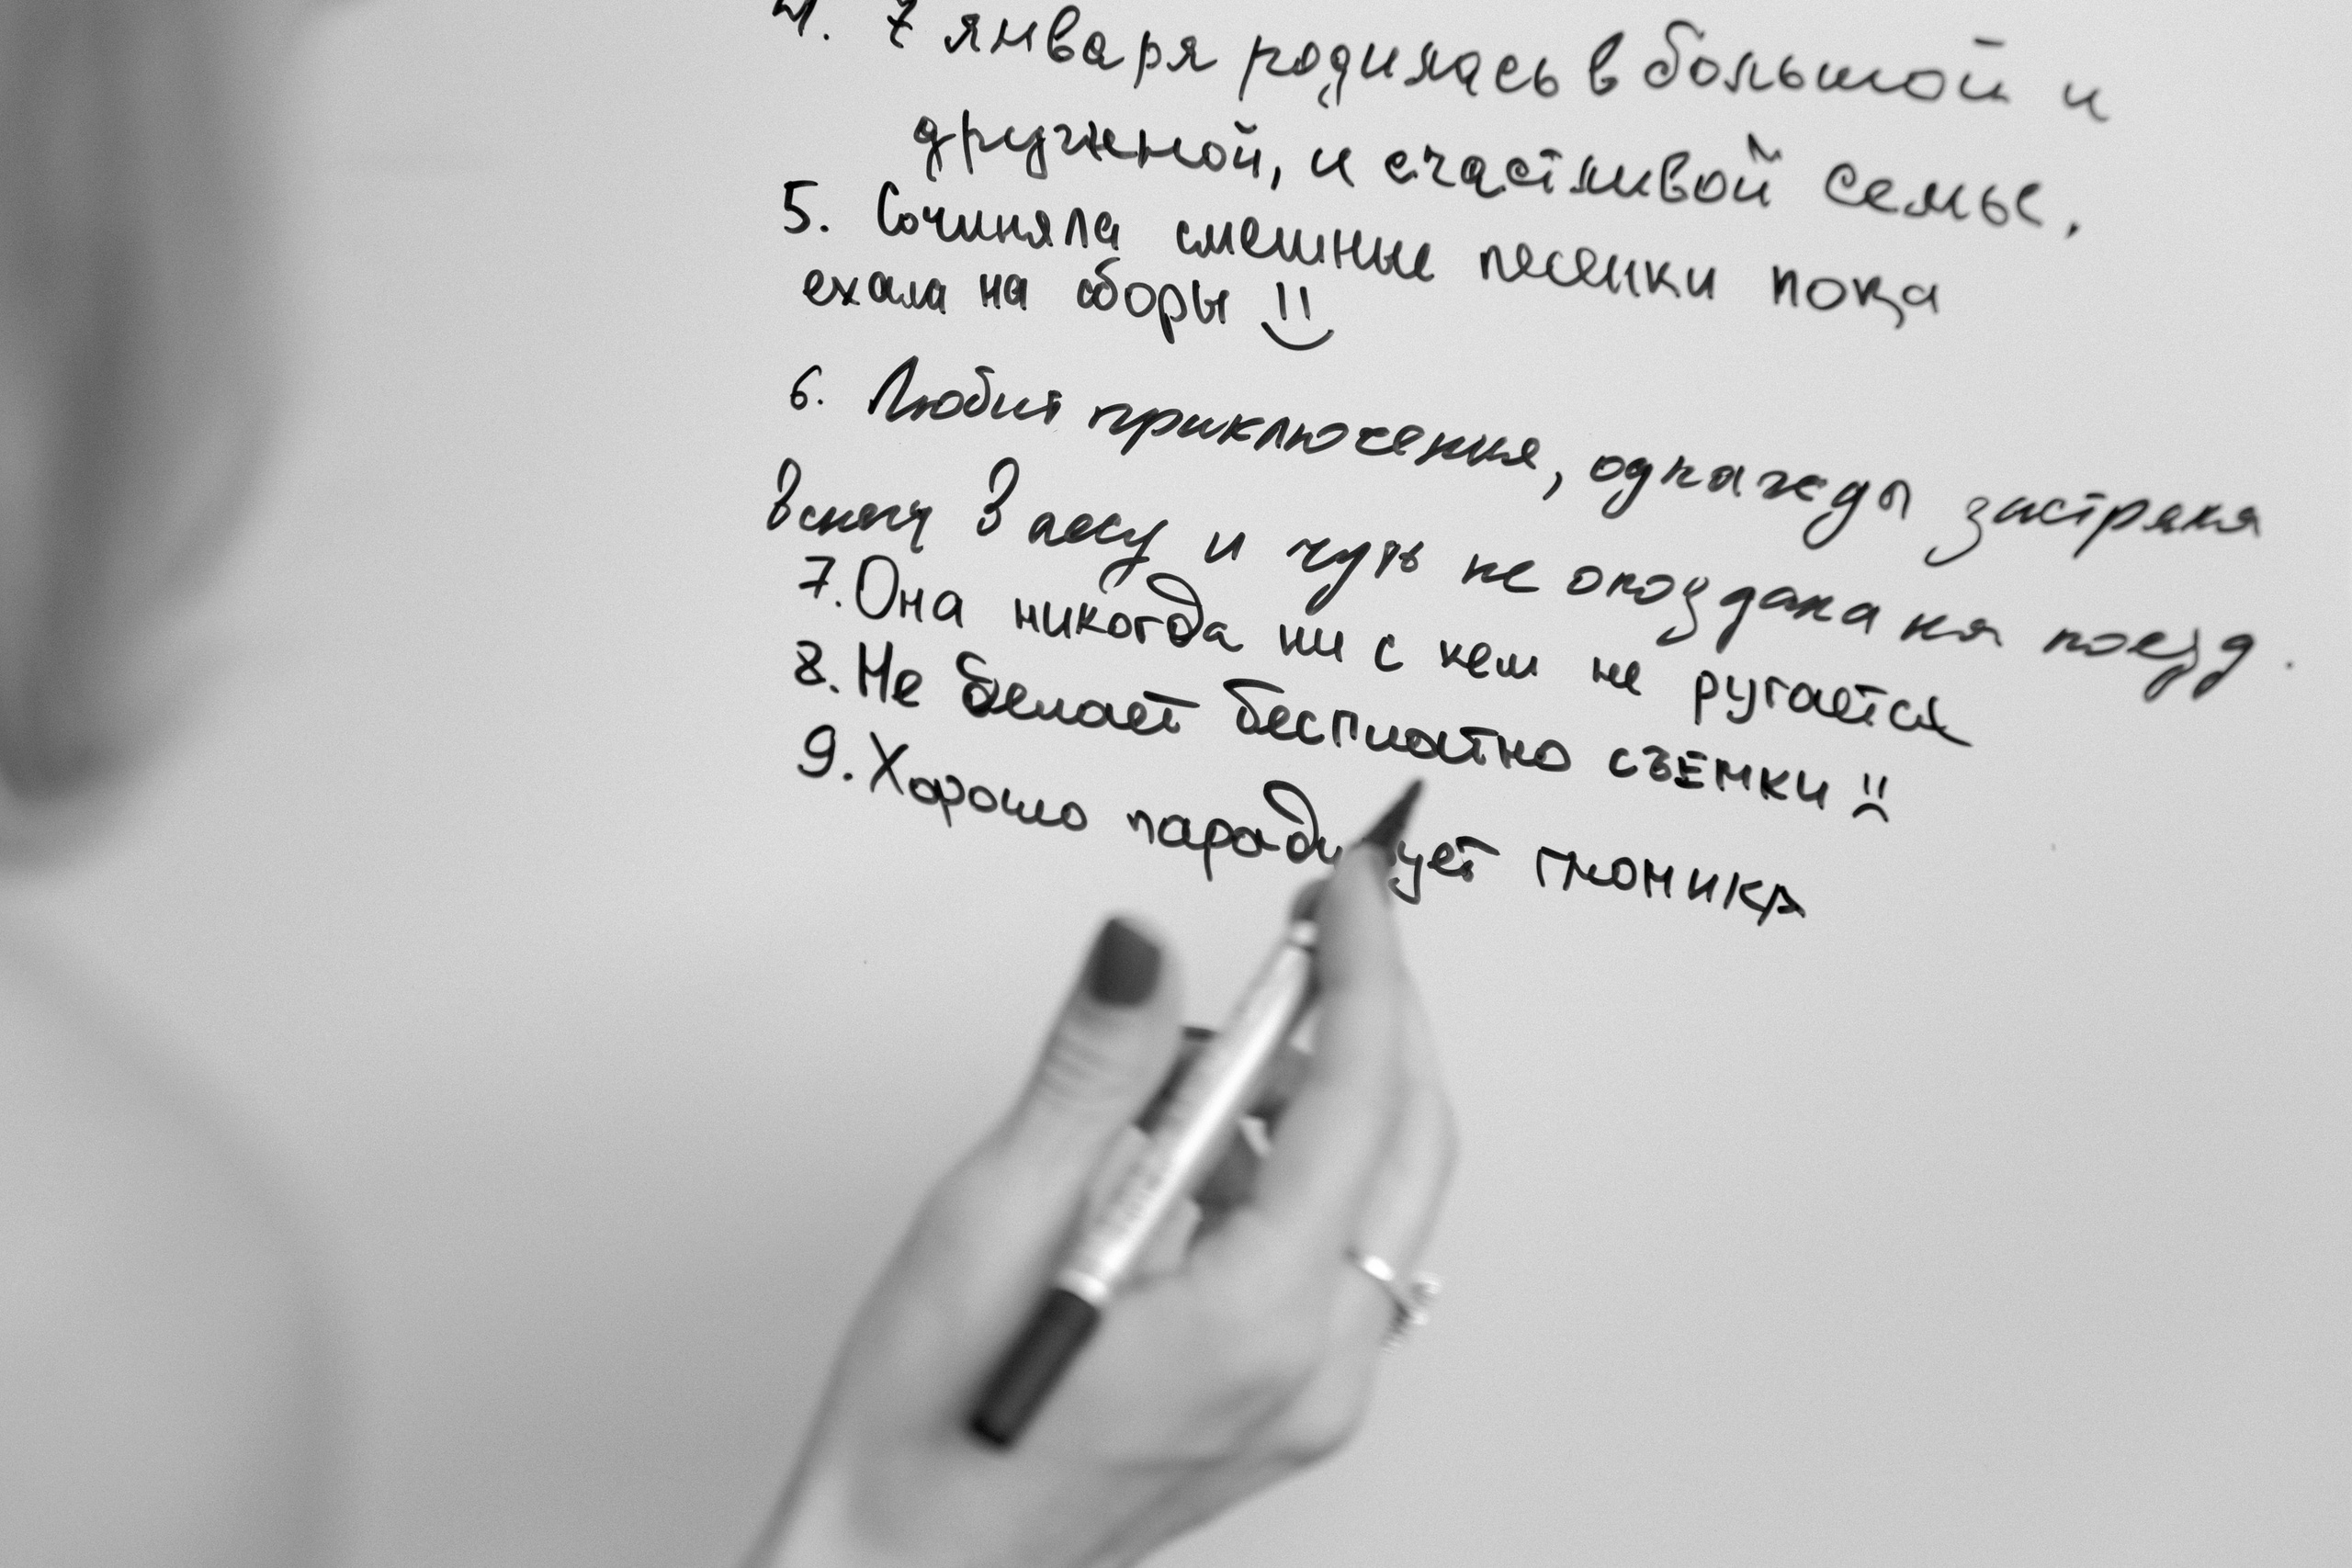 4. 7 января родилась в большой и
дружной, и счастливой семье.
5. Сочиняла смешные песенки пока
ехала на сборы
6. Любит приключения, однажды застряла
в снегу в лесу и чуть не опоздала на поезд.
7. Она никогда ни с кем не ругается
8. Не делает бесплатно съемки
9. Хорошо гномика